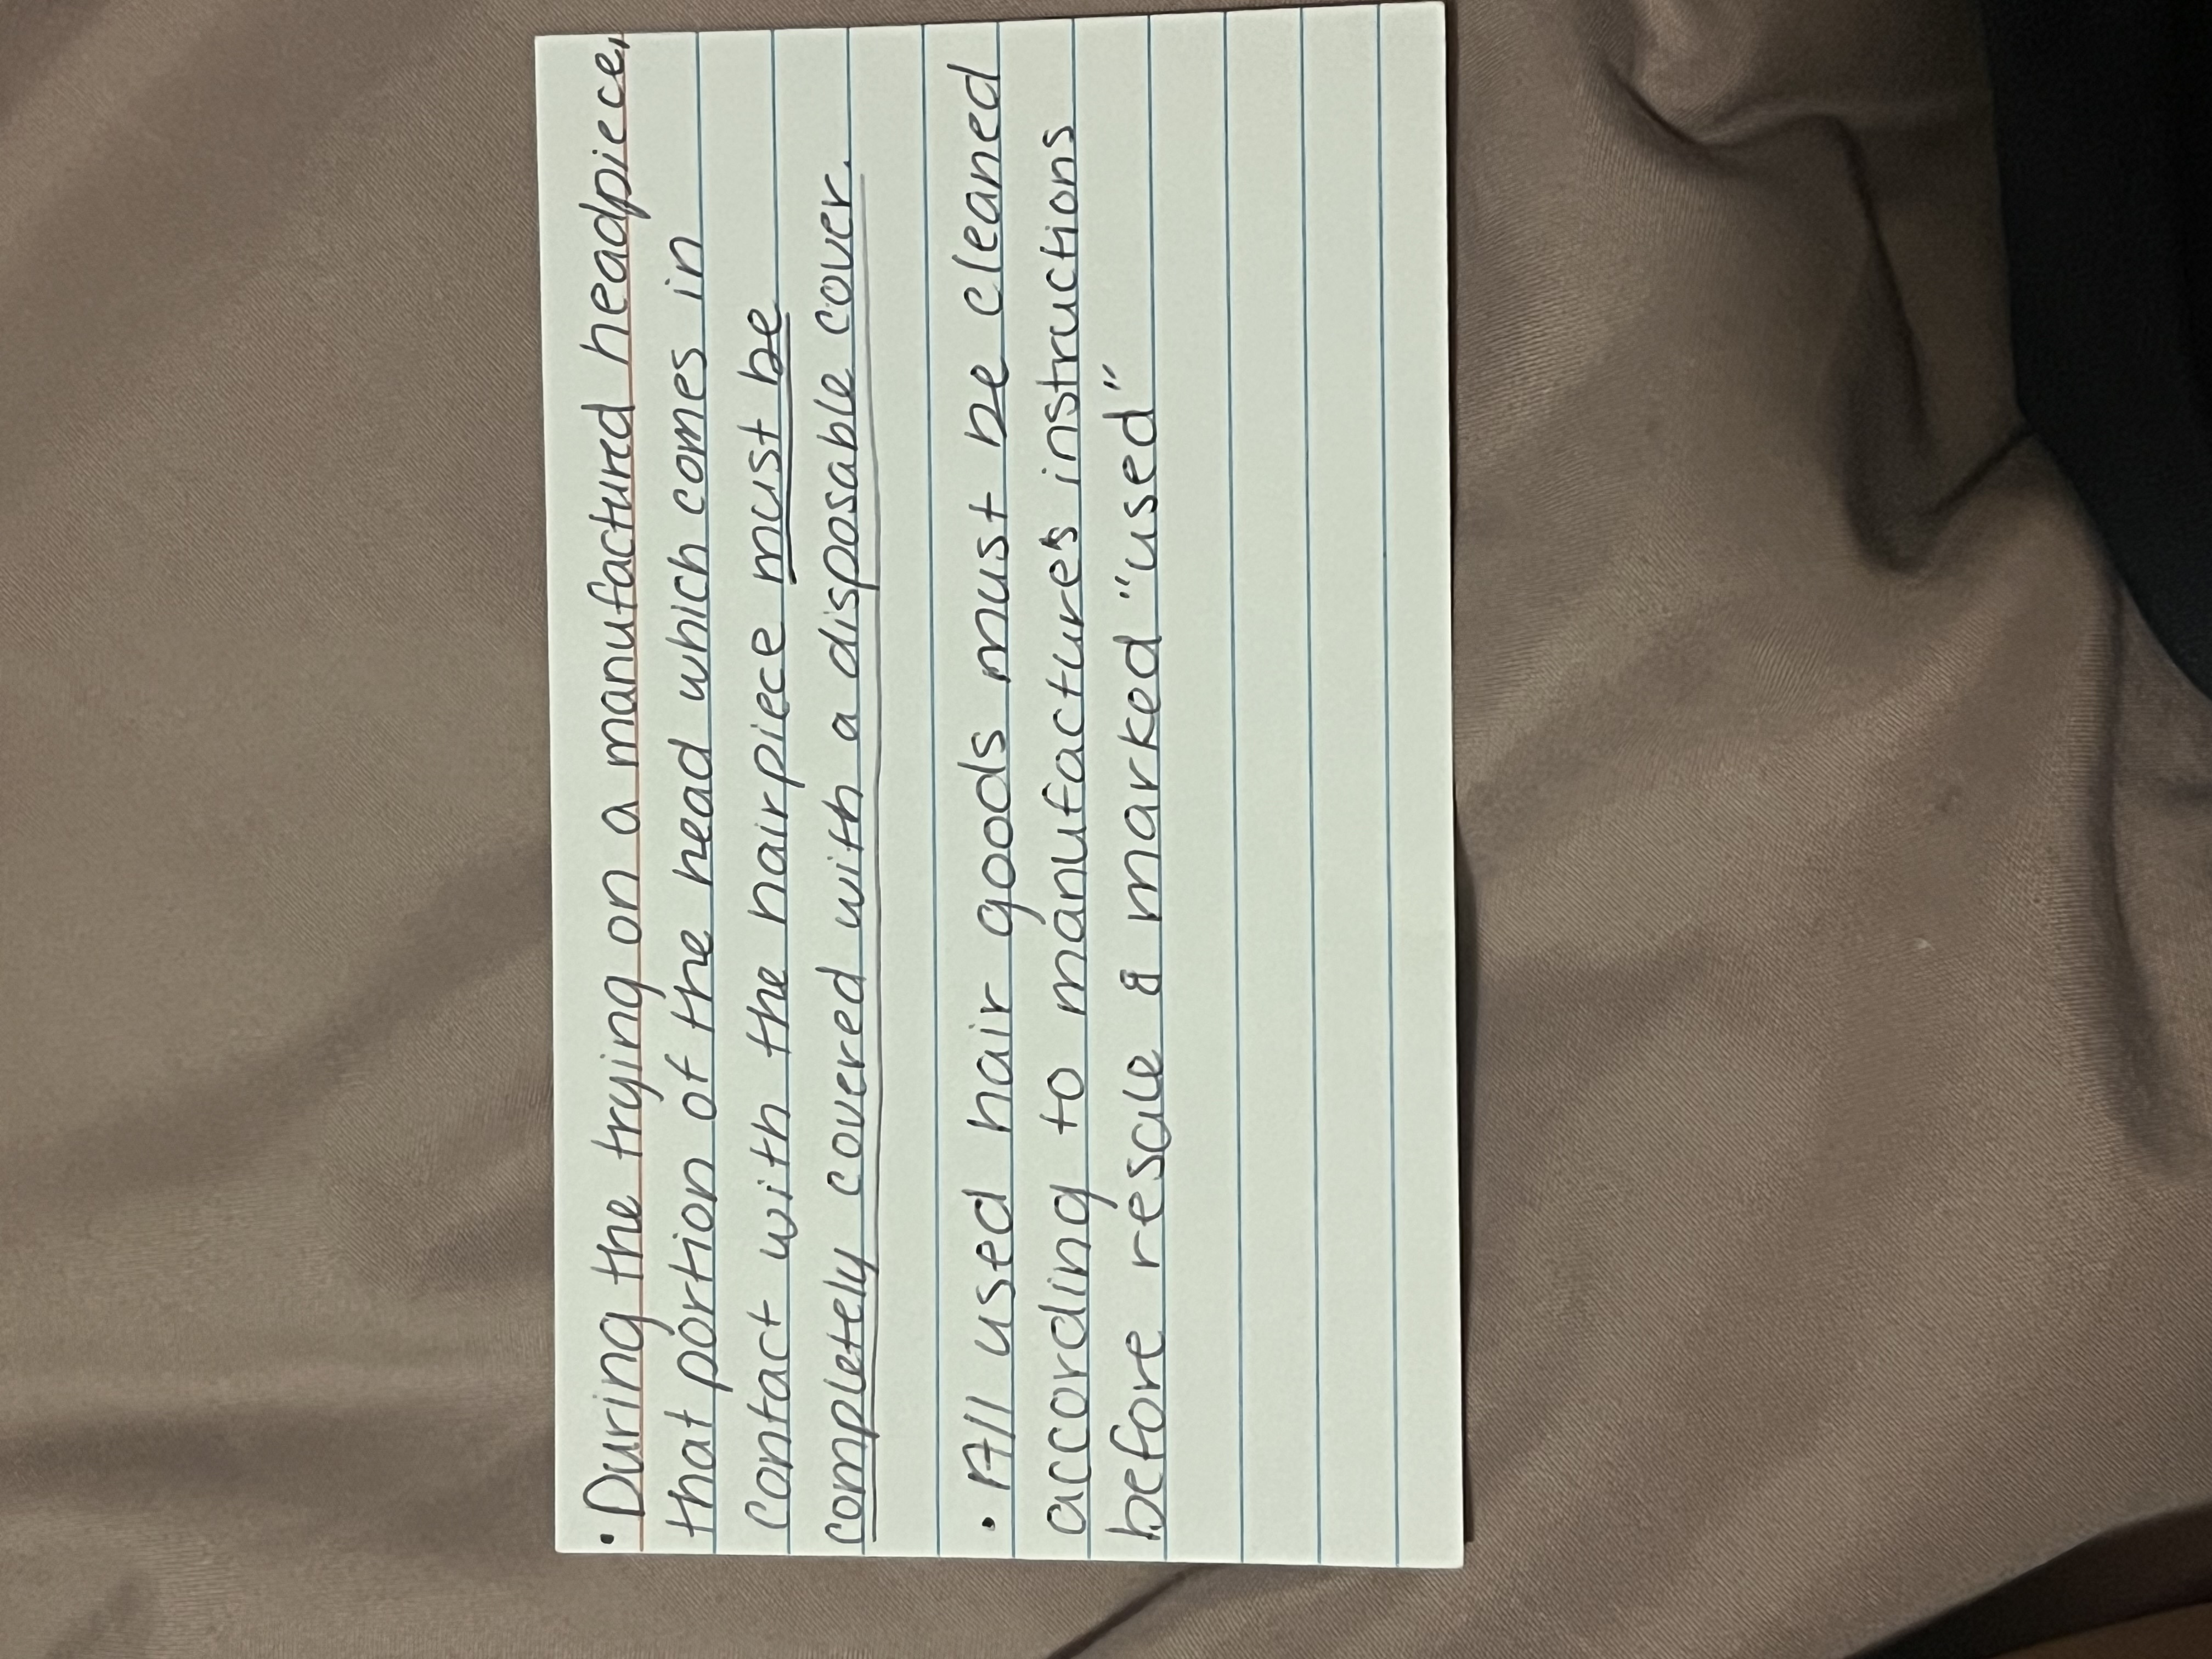 • During the trying on a manufactured headpiece,
that portion of the head which comes in
contact with the hairpiece must be
completely covered with a disposable cover.
• All used hair goods must be cleaned
according to manufacture's instructions
before resale & marked "used"